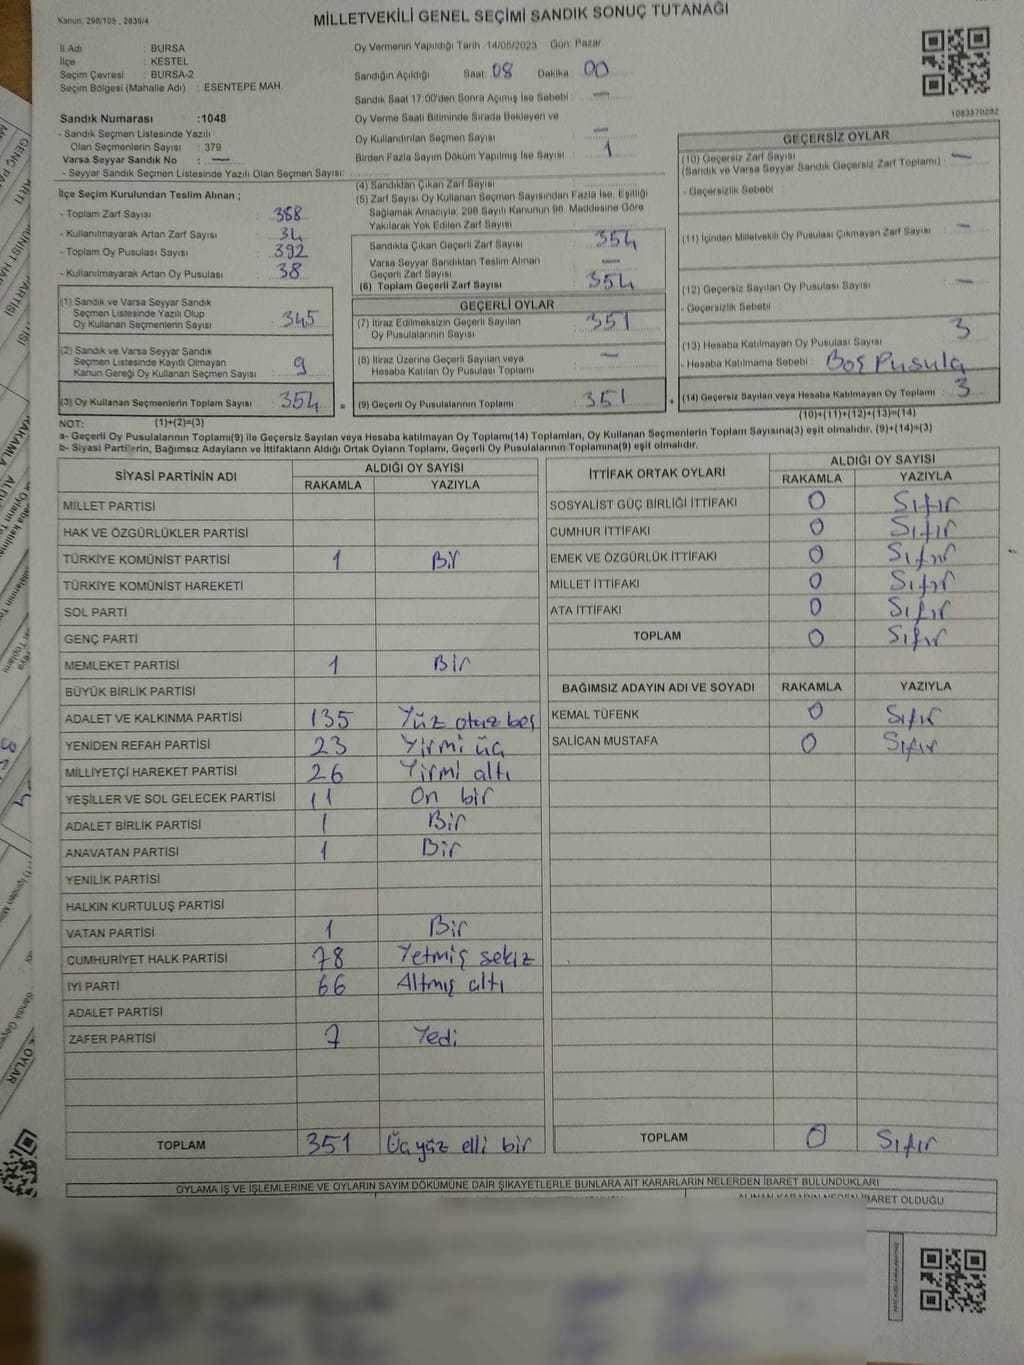 Kanun; 298/105 , 2839/4
MİLLETVEKİLİ GENEL SEÇİMİ SANDIK SONUÇ TUTANAĞI
İl Adı : BURSA
İlçe : KESTEL
Seçim Çevresi : BURSA-2
Seçim Bölgesi (Mahalle Adı) : ESENTEPE MAH.
Sandık Numarası :1048
- Sandık Seçmen Listesinde Yazılı
Olan Seçmenlerin Sayısı : 379
Varsa Seyyar Sandık No : —
- Seyyar Sandık Seçmen Listesinde Yazılı Olan Seçmen Sayısı:
Oy Vermenin Yapıldığı Tarih :14/05/2023 Gün: Pazar
Sandığın Açıldığı Saat: 08 Dakika 00
Sandık Saat 17:00'den Sonra Açımış İse Sebebi : —
Oy Verme Saati Bitiminde Sırada Bekleyen ve
Oy Kullandırılan Seçmen Sayısı —
Birden Fazla Sayım Döküm Yapılmış İse Sayısı 1
1083570292
İlçe Seçim Kurulundan Teslim Alınan ;
- Toplam Zarf Sayısı : 388
- Kullanılmayarak Artan Zarf Sayısı : 34
- Toplam Oy Pusulası Sayısı : 392
- Kullanılmayarak Artan Oy Pusulası : 38
(1) Sandık ve Varsa Seyyar Sandık
Seçmen Listesinde Yazılı Olup
Oy Kullanan Seçmenlerin Sayısı : 345
(2) Sandık ve Varsa Seyyar Sandık
Seçmen Listesinde Kayıtlı Olmayan
Kanun Gereği Oy Kullanan Seçmen Sayısı : 9
(3) Oy Kullanan Seçmenlerin Toplam Sayısı : 354 =
(4) Sandıktan Çıkan Zarf Sayısı
(5) Zarf Sayısı Oy Kullanan Seçmen Sayısından Fazla İse, Eşitliği
Sağlamak Amacıyla; 298 Sayılı Kanunun 98. Maddesine Göre
Yakılarak Yok Edilen Zarf Sayısı :
Sandıkta Çıkan Geçerli Zarf Sayısı : 354
Varsa Seyyar Sandıktan Teslim Alınan
Geçerli Zarf Sayısı : —
(6) Toplam Geçerli Zarf Sayısı : 354
GEÇERLİ OYLAR
(7) İtiraz Edilmeksizin Geçerli Sayılan
Oy Pusulalarının Sayısı : 351
(8) İtiraz Üzerine Geçerli Sayılan veya
Hesaba Katılan Oy Pusulası Toplamı : —
(9) Geçerli Oy Pusulalarının Toplamı : 351 +
GEÇERSİZ OYLAR
(10) Geçersiz Zarf Sayısı
(Sandık ve Varsa Seyyar Sandık Geçersiz Zarf Toplamı) : —
- Geçersizlik Sebebi :
(11) İçinden Milletvekili Oy Pusulası Çıkmayan Zarf Sayısı : —
(12) Geçersiz Sayılan Oy Pusulası Sayısı : —
- Geçersizlik Sebebi :
(13) Hesaba Katılmayan Oy Pusulası Sayısı : 3
- Hesaba Katılmama Sebebi : Boş Pusula
(14) Geçersiz Sayılan veya Hesaba Katılmayan Oy Toplamı : 3
NOT: (1)+(2)=(3) (10)+(11)+(12)+(13)=(14)
a- Geçerli Oy Pusulalarının Toplamı(9) ile Geçersiz Sayılan veya Hesaba katılmayan Oy Toplamı(14) Toplamları, Oy Kullanan Seçmenlerin Toplam Sayısına(3) eşit olmalıdır. (9)+(14)=(3)
b- Siyasi Partilerin, Bağımsız Adayların ve İttifakların Aldığı Ortak Oyların Toplamı, Geçerli Oy Pusulalarının Toplamına(9) eşit olmalıdır.
SİYASİ PARTİNİN ADI ALDIĞI OY SAYISI
RAKAMLA YAZIYLA
MİLLET PARTİSİ
HAK VE ÖZGÜRLÜKLER PARTİSİ
TÜRKİYE KOMÜNİST PARTİSİ 1 Bir
TÜRKİYE KOMÜNİST HAREKETİ
SOL PARTİ
GENÇ PARTİ
MEMLEKET PARTİSİ 1 Bir
BÜYÜK BİRLİK PARTİSİ
ADALET VE KALKINMA PARTİSİ 135 Yüz otuz beş
YENİDEN REFAH PARTİSİ 23 Yirmi üç
MİLLİYETÇİ HAREKET PARTİSİ 26 Yirmi altı
YEŞİLLER VE SOL GELECEK PARTİSİ 11 On bir
ADALET BİRLİK PARTİSİ 1 Bir
ANAVATAN PARTİSİ 1 Bir
YENİLİK PARTİSİ
HALKIN KURTULUŞ PARTİSİ
VATAN PARTİSİ 1 Bir
CUMHURİYET HALK PARTİSİ 78 Yetmiş sekiz
İYİ PARTİ 66 Altmış altı
ADALET PARTİSİ
ZAFER PARTİSİ 7 Yedi
TOPLAM 351 Üçyüz elli bir
İTTİFAK ORTAK OYLARI ALDIĞI OY SAYISI
RAKAMLA YAZIYLA
SOSYALİST GÜÇ BİRLİĞİ İTTİFAKI 0 Sıfır
CUMHUR İTTİFAKI 0 Sıfır
EMEK VE ÖZGÜRLÜK İTTİFAKI 0 Sıfır
MİLLET İTTİFAKI 0 Sıfır
ATA İTTİFAKI 0 Sıfır
TOPLAM 0 Sıfır
BAĞIMSIZ ADAYIN ADI VE SOYADI RAKAMLA YAZIYLA
KEMAL TÜFENK 0 Sıfır
SALİCAN MUSTAFA 0 Sıfır
TOPLAM 0 Sıfır
OYLAMA İŞ VE İŞLEMLERİNE VE OYLARIN SAYIM DÖKÜMÜNE DAİR ŞİKAYETLERLE BUNLARA AİT KARARLARIN NELERDEN İBARET BULUNDUKLARI
ALINAN KARARIN NEDEN İBARET OLDUĞU